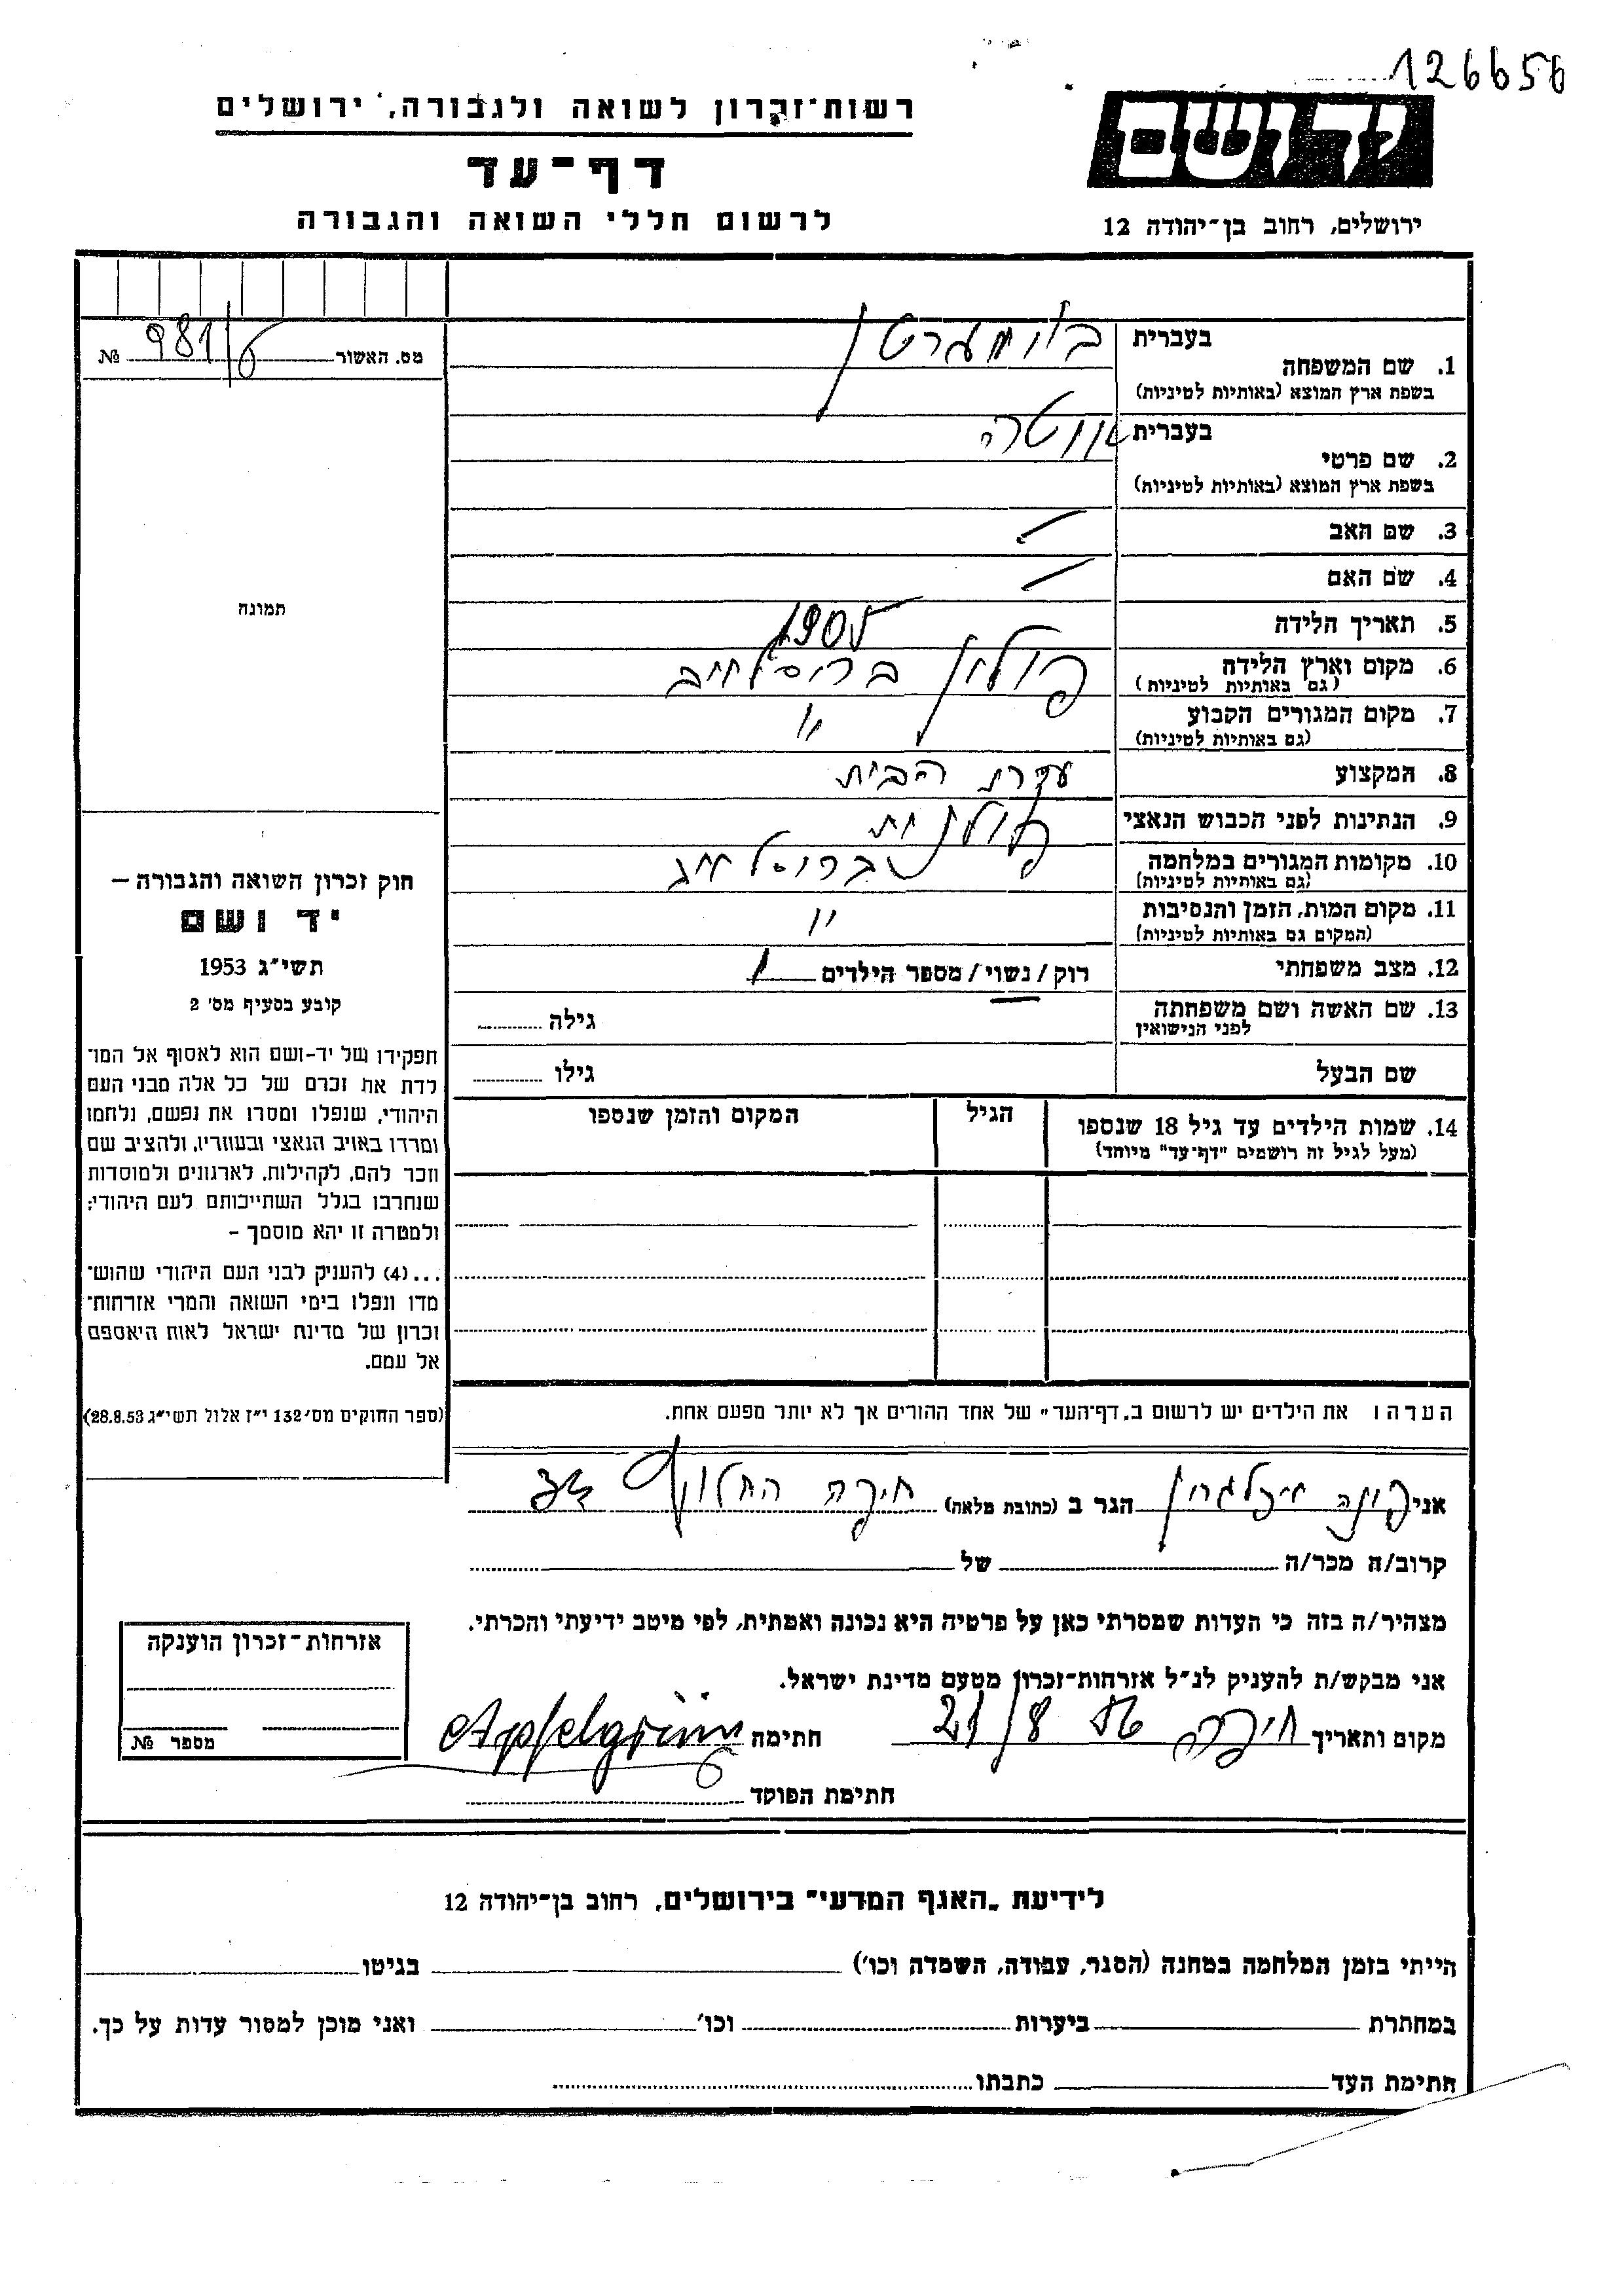 126656
יד ושם
ירושלים, רחוב בן־יהודה 12
רשות־זכרון לשואה ולגבורה, ירושלים
דף־עד
לרשום חללי השואה והגבורה
מס. האשור 981/6 №
1. שם המשפחה
בעברית באומגרטן
בשפת ארץ המוצא (באותיות לטיניות)
2. שם פרטי
בעברית
בשפת ארץ המוצא (באותיות לטיניות)
3. שם האב
4. שם האם
5. תאריך הלידה 1905
6. מקום וארץ הלידה פולין
(גם באותיות לטיניות)
7. מקום המגורים הקבוע "
(גם באותיות לטיניות)
8. המקצוע עקרת הבית
9. הנתינות לפני הכבוש הנאצי פולנית
10. מקומות המגורים במלחמה
(גם באותיות לטיניות)
11. מקום המות, הזמן והנסיבות "
(המקום גם באותיות לטיניות)
12. מצב משפחתי רוק/נשוי/מספר הילדים 1
13. שם האשה ושם משפחתה גילה
לפני הנישואין
שם הבעל גילו
14. שמות הילדים עד גיל 18 שנספו הגיל המקום והזמן שנספו
(מעל לגיל זה רושמים "דף־עד" מיוחד)
הערה: את הילדים יש לרשום ב„דף־העד" של אחד ההורים אך לא יותר מפעם אחת.
תמונה
חוק זכרון השואה והגבורה —
יד ושם
תשי״ג 1953
קובע בסעיף מס׳ 2
תפקידו של יד-ושם הוא לאסוף אל המו־
לדת את זכרם של כל אלה מבני העם
היהודי, שנפלו ומסרו את נפשם, נלחמו
ומרדו באויב הנאצי ובעוזריו, ולהציב שם
וזכר להם, לקהילות, לארגונים ולמוסדות
שנחרבו בגלל השתייכותם לעם היהודי;
ולמטרה זו יהא מוסמך –
...(4) להעניק לבני העם היהודי שהוש־
מדו ונפלו בימי השואה והמרי אזרחות־
זכרון של מדינת ישראל לאות היאספם
אל עמם.
(ספר החוקים מס׳ 132 י״ז אלול תשי״ג 28.8.53)
אני הגר ב (כתובת מלאה) חיפה החלוץ
קרוב/ה מכר/ה של
מצהיר/ה בזה כי העדות שמסרתי כאן על פרטיה היא נכונה ואמתית, לפי מיטב ידיעתי והכרתי.
אני מבקש/ת להעניק לנ״ל אזרחות־זכרון מטעם מדינת ישראל.
מקום ותאריך חיפה 21/8 56 חתימה Apfelgrün
חתימת הפוקד
אזרחות־זכרון הוענקה
מספר №
לידיעת „האגף המדעי" בירושלים, רחוב בן־יהודה 12
הייתי בזמן המלחמה במחנה (הסגר, עבודה, השמדה וכו׳) בגיטו
במחתרת ביערות וכו׳ ואני מוכן למסור עדות על כך.
חתימת העד כתבתו